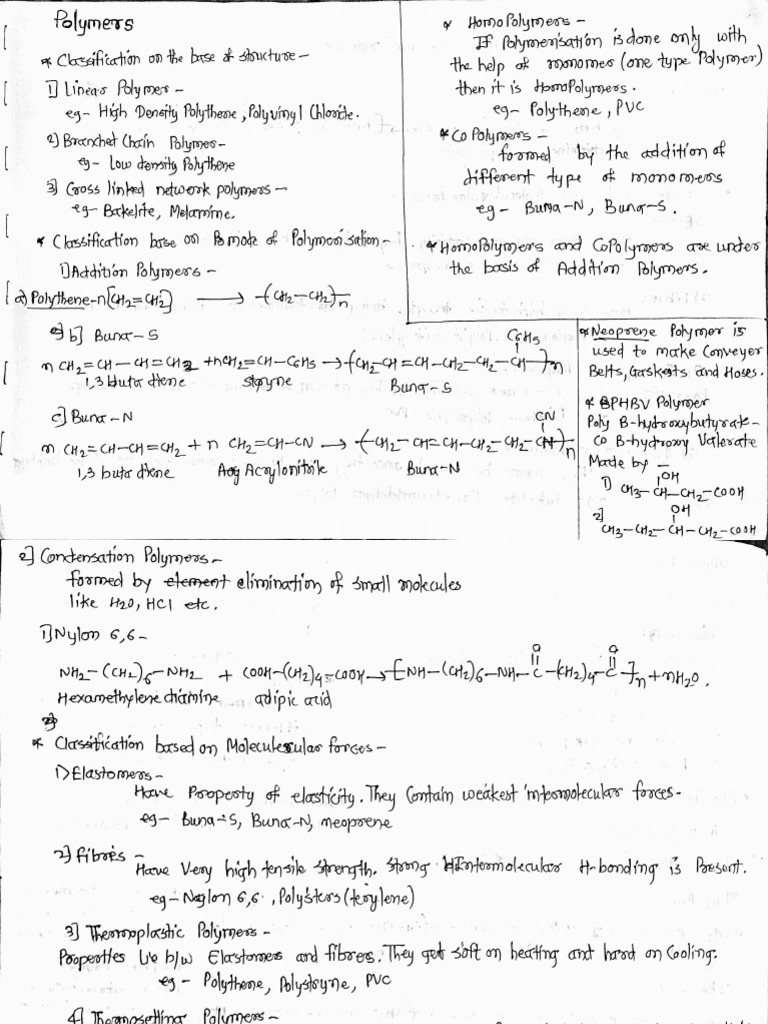 Polymers
* Classification on the base of structure -
1] Linear Polymer -
eg - High Density Polythene, Polyvinyl Chloride.
2] Branchet Chain Polymer -
eg - Low density Polythene
3] Cross linked network polymers -
eg - Bakelite, Melamine.
* Classification base on mode of Polymerisation -
1) Addition Polymers -
a) Polythene - n[CH2=CH2] ⟶ -(CH2-CH2)-n
b] Buna-S
C6H5
n CH2=CH-CH=CH2 + nCH2=CH-C6H5 → -(CH2-CH=CH-CH2-CH2-CH)-n
1,3 buta diene styryne Buna-S
c) Buna-N
CN
n CH2=CH-CH=CH2 + n CH2=CH-CN → -(CH2-CH=CH-CH2-CH2-CH)-n
1,3 buta diene Acrylonitrile Buna-N
* Homo Polymers -
If Polymerisation is done only with
the help of monomer (one type Polymer)
then it is HomoPolymers.
eg - Polythene, PVC
* Co Polymers -
formed by the addition of
different type of monomers
eg - Buna-N, Buna-S.
* HomoPolymers and CoPolymers are under
the basis of Addition Polymers.
* Neoprene Polymer is
used to make Conveyer
Belts, Gaskets and Hoses.
* PHBV Polymer
Poly B-hydroxybutyrate -
co B-hydroxy Valerate
Made by -
OH
1) CH3-CH-CH2-COOH
OH
2] CH3-CH2-CH-CH2-COOH
2] Condensation Polymers -
formed by element elimination of small molecules
like H2O, HCl etc.
1] Nylon 6,6 -
O O
NH2-(CH2)6-NH2 + COOH-(CH2)4-COOH → [NH-(CH2)6-NH-C-(CH2)4-C]n + nH2O.
Hexamethylene diamine adipic acid
* Classification based on Molecular forces -
1) Elastomers -
Have Property of elasticity. They Contain weakest intermolecular forces -
eg - Buna-S, Buna-N, neoprene
2) fibres -
Have Very high tensile strength. Strong Intermolecular H-bonding is Present.
eg - Nylon 6,6, Polysters (terylene)
3] Thermoplastic Polymers -
Properties Lie b/w Elastomers and fibres. They get soft on heating and hard on Cooling.
eg - Polythene, Polystryne, PVC
4] Thermosetting Polymers -